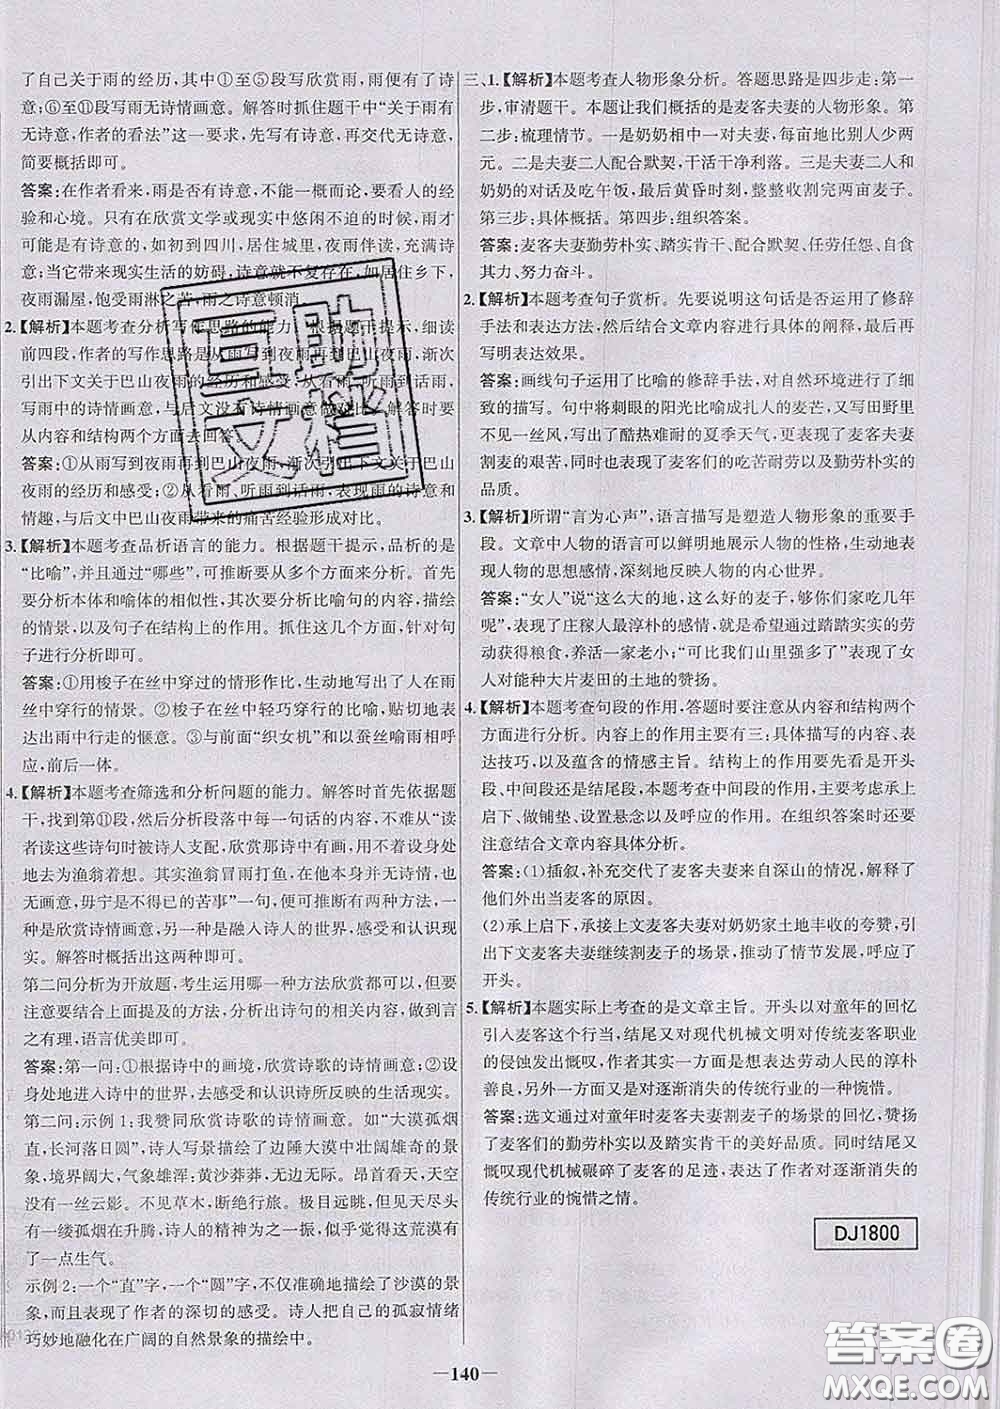 了自己关于雨的经历，其中①至⑤段写欣赏雨，雨有了诗
意；⑥至⑪段写雨无诗情画意。解答时抓住题干中“关于雨有
无诗意，作者的看法”这一要求，先写有诗意，再交代无诗意，
简要概括即可。
答案：在作者看来，雨是否有诗意，不能一概而论，要看人的经
验和心境。只有在欣赏文学或现实中悠闲不迫的时候，雨才
可能是有诗意的，如初到四川，居住城里，夜雨伴读，充满诗
意；当它带来现实生活的妨碍，诗意就不复存在，如居住乡下，
夜雨漏屋，饱受雨淋之苦，雨之诗意顿消。
2.【解析】本题考查分析写作思路的能力。根据题干提示，细读
前四段，作者的写作思路是从雨写到夜雨再到巴山夜雨，渐次
引出下文关于巴山夜雨的经历和感受；从看雨、听雨到话雨，
写雨中的诗情画意，与后文没有诗意做对比。解答时要
从内容和结构两个方面去回答。
答案：①从雨写到夜雨再到巴山夜雨，渐次引出下文关于巴
山夜雨的经历和感受；②从看雨、听雨到话雨，表现雨的诗意和
情趣，与后文中巴山夜雨带来的痛苦经验形成对比。
3.【解析】本题考查品析语言的能力。根据题干提示，品析的
是“比喻”，并且通过“哪些”，可推断要从多个方面来分析。首先
要分析本体和喻体的相似性，其次要分析比喻句的内容，描绘
的情景，以及句子在结构上的作用。抓住这几个方面，针对句
子进行分析即可。
答案：①用梭子在丝中穿过的情形作比，生动地写出了人在雨
丝中穿行的情景。②梭子在丝中轻巧穿行的比喻，贴切地表
达出雨中行走的惬意。③与前面“织女机”和以蚕丝喻雨相呼
应，前后一体。
4.【解析】本题考查筛选和分析问题的能力。解答时首先依据题
干，找到第⑪段，然后分析段落中每一句话的内容，不难从“读
者读这些诗句时被诗人支配，欣赏那诗中有画，而未能设身处
地去为渔翁着想。其实渔翁冒雨打鱼，在他本身并无诗情，也
无画意，毋宁是不得已的苦事”一句，便可看到有两种方法，一
种是欣赏诗情画意，另一种是融入诗人的世界，感受和认识现
实。解答时概括出这两种即可。
第二问分析为开放题，考生运用哪一种方法欣赏都可以，但要
注意要结合上面提及的方法，分析出诗句的具体内容，做到言
之有理，语言优美即可。
答案：第一问：①根据诗中的画境，欣赏诗歌的诗情画意；②设
身处地进入诗中的世界，去感受和认识诗所反映的生活现实。
第二问：示例1：我赞同欣赏诗歌的诗情画意。如“大漠孤烟
直，长河落日圆”，诗人写景描绘了边陲大漠中壮阔雄奇的景
象，境界阔大，气象雄浑：黄沙莽莽，无边无际。昂首看天，天空
没有一丝云影。不见草木，断绝行旅。极目远眺，但见天尽头
有一缕孤烟在升腾，诗人的精神为之一振，似乎觉得这荒漠有
了一点生气。
示例2：一个“直”字，一个“圆”字，不仅准确地描绘了沙漠的景
象，而且表现了作者的深切的感受。诗人把自己的孤寂情绪
巧妙地融化在广阔的自然景象的描绘中。
三、1.【解析】本题考查人物形象分析。答题思路是四步走：第一
步，审清题干。本题让我们概括的是麦客夫妻的人物形象。第
二步：梳理情节。一是奶奶相中一对夫妻，每亩地比别人少两
元。二是夫妻二人配合默契，干活干净利落。三是夫妻二人和
奶奶的对话及吃午饭，最后黄昏时刻，整整收割完两亩麦子。
第三步：具体概括。第四步：组织答案。
答案：麦客夫妻勤劳朴实、踏实肯干、配合默契、任劳任怨、自食
其力、努力奋斗。
2.【解析】本题考查句子赏析。先要说明这句话是否运用了修辞
手法和表达方法，然后结合文章内容进行具体的阐释，最后再
写明表达效果。
答案：画线句子运用了比喻的修辞手法，对自然环境进行了细
致的描写。句中将刺眼的阳光比喻成扎人的麦芒，又写田野里
不见一丝风，写出了酷热难耐的夏季天气，突出了麦客夫妻
割麦的艰苦，同时也写出了麦客们的吃苦耐劳以及勤劳朴实
的品质。
3.【解析】所谓“言为心声”，语言描写是塑造人物形象的重要手
段。文章中人物的语言可以鲜明地展示人物的性格，生动地表
现人物的思想感情，深刻地反映人物的内心世界。
答案：“女人”说“这么大的地，这么好的麦子，够你们家吃几年
呢”，表现了庄稼人最淳朴的感情，就是希望通过踏踏实实的劳
动获得粮食，养活一家老小；“可比我们山里强多了”表现了女
人对能种大片麦田的土地的赞扬。
4.【解析】本题考查句段的作用，答题时要注意从内容和结构两个
方面进行分析。内容上的作用主要有三：具体描写的内容、表
达技巧，以及蕴含的情感主旨。结构上的作用要看是开头
段、中间段还是结尾段，本题考查中间段的作用，主要有承上
启下、做铺垫、设置悬念以及呼应的作用。在组织答案时还要
注意结合文章内容具体分析。
答案：(1)插叙，补充交代了麦客夫妻来自深山的情况，解释了
他们外出当麦客的原因。
(2)承上启下，承接上文麦客夫妻对奶奶家土地丰收的夸赞，引
出下文麦客夫妻继续割麦子的场景，推动了情节发展，呼应了
开头。
5.【解析】本题实际上考查的是文章主旨。开头以对童年的回忆
引入麦客这个行当，结尾又对现代机械文明对传统麦客职业
的侵蚀发出慨叹，作者其实一方面是想表达劳动人民的淳朴
善良，另外一方面又是对逐渐消失的传统行业的一种惋惜。
答案：选文通过对童年时麦客夫妻割麦子的场景的回忆，赞扬
了麦客们的勤劳朴实以及踏实肯干的美好品质。同时结尾又
慨叹现代机械碾碎了麦客的足迹，表达了作者对逐渐消失的
传统行业的惋惜之情。
DJ1800
—140—
互助
文档
答案圈
MXQE.COM